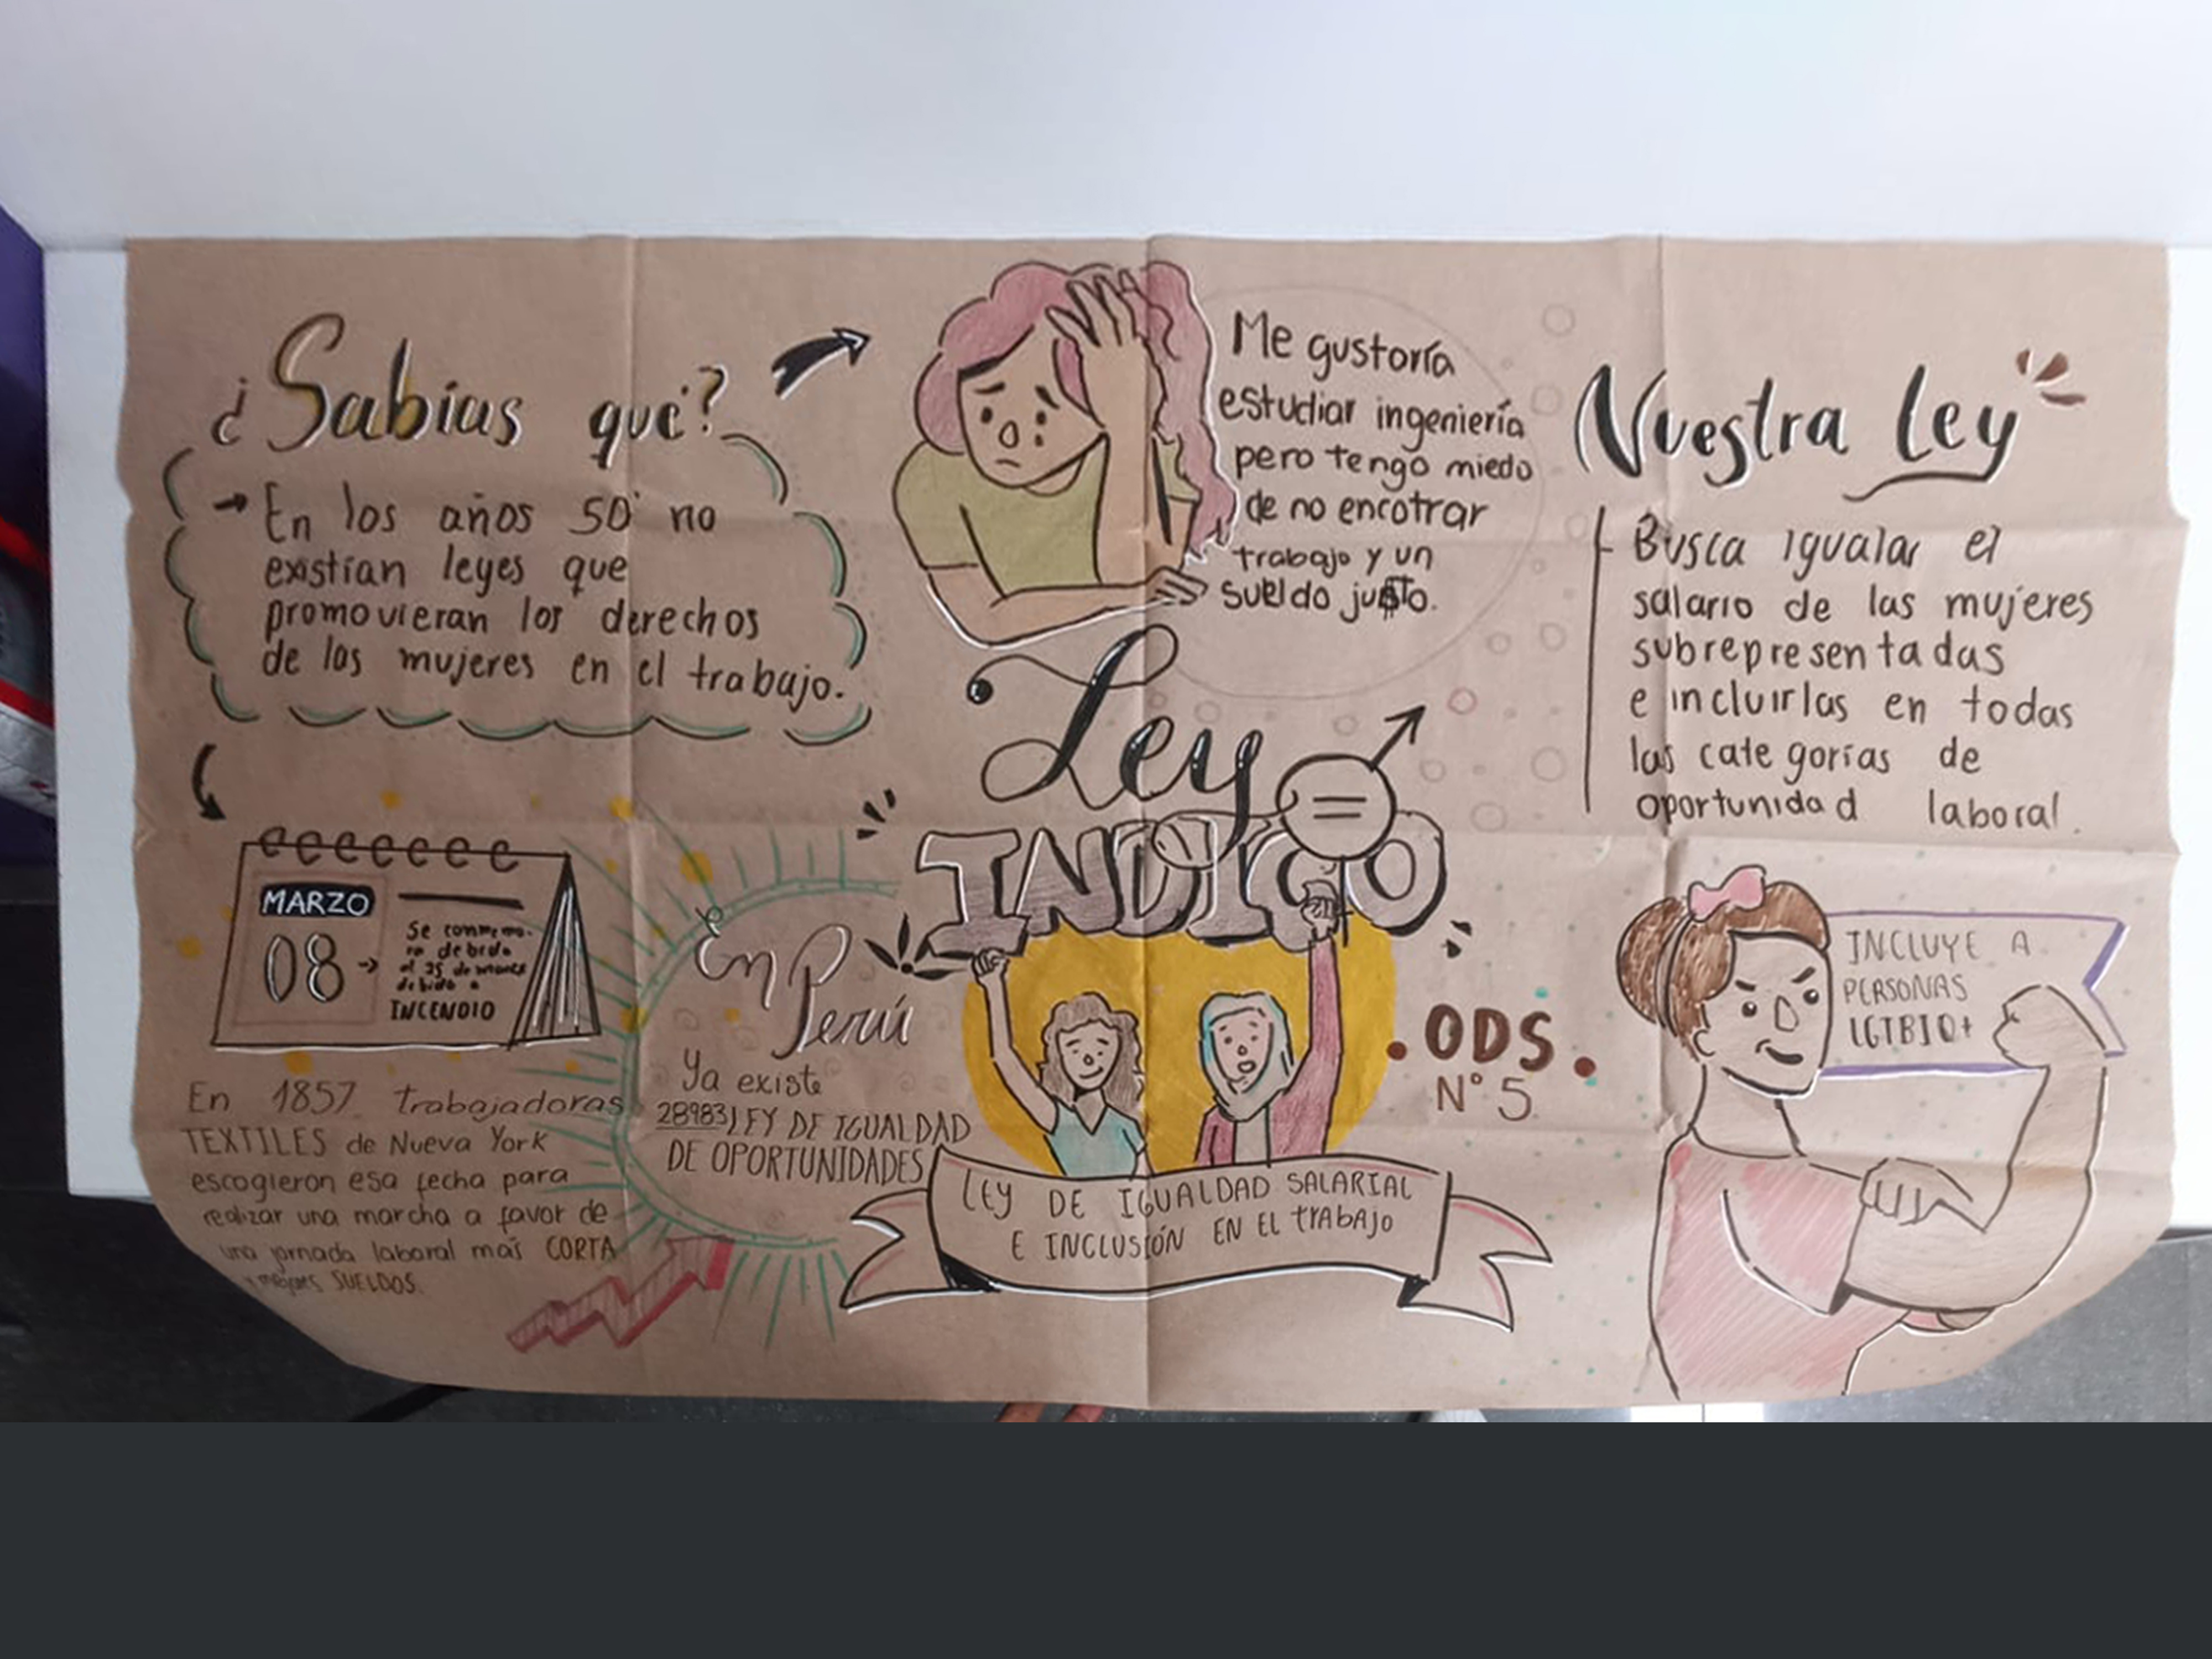 ¿Sabías qué?
→ En los años 50' no
existían leyes que
promovieran los derechos
de las mujeres en el trabajo.
MARZO
08 →
Se conmemo-
ra debido
al 25 de
debido a
INCENDIO
En 1857 trabajadoras
TEXTILES de Nueva York
escogieron esa fecha para
realizar una marcha a favor de
una jornada laboral más CORTA
y mejores SUELDOS.
Me gustaría
estudiar ingeniería
pero tengo miedo
de no encotrar
trabajo y un
sueldo ju$to.
Ley
INDIGO
=
En Perú
Ya existe
28983 LEY DE IGUALDAD
DE OPORTUNIDADES
LEY DE IGUALDAD SALARIAL
E INCLUSIÓN EN EL trabajo
. ODS .
N° 5
Nuestra Ley
Busca igualar el
salario de las mujeres
subrepresentadas
e incluirlas en todas
las categorías de
oportunidad laboral.
INCLUYE A
PERSONAS
LGTBIQ+